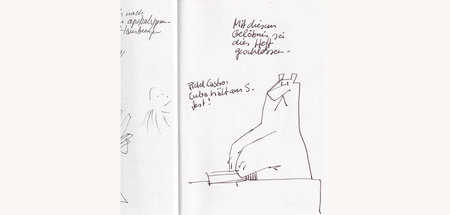 nach
apokalypse
Mit diesem
Gelöbnis sei
dies Heft
geschlossen.
Fidel Castro:
Cuba hält am S.
fest!